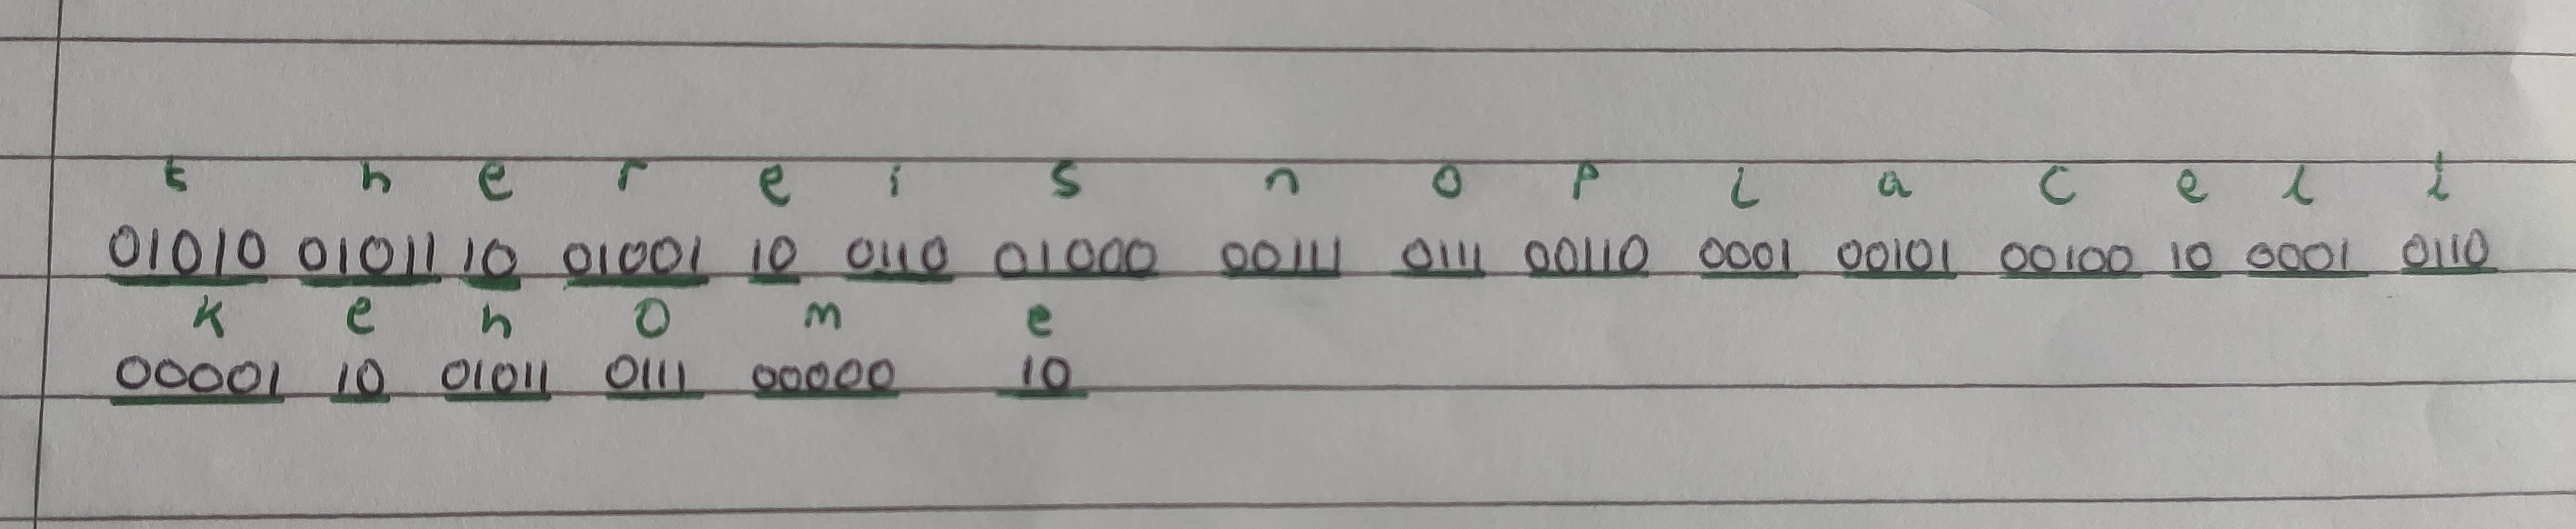 t h e r e i s n o p l a c e l i
01010 01011 10 01001 10 0110 01000 00111 0111 00110 0001 00101 00100 10 0001 0110
k e h o m e
00001 10 01011 0111 00000 10